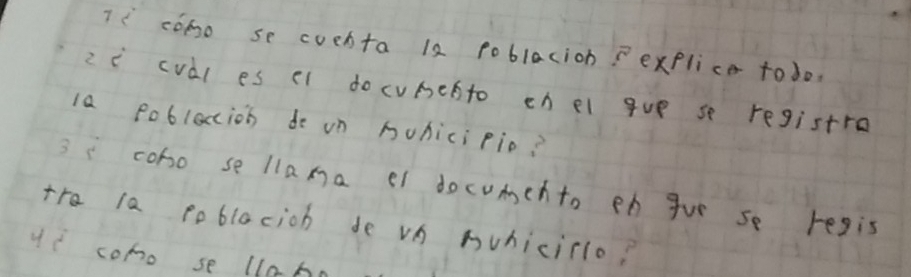 1¿ cómo se cuenta la poblacion? explica todo.
2¿ cuál es el documento en el que se registra
la poblacción de un municipio?
3¿ como se llama el documento en que se regis
tra la poblacion de un municillo?
4¿ como se llama